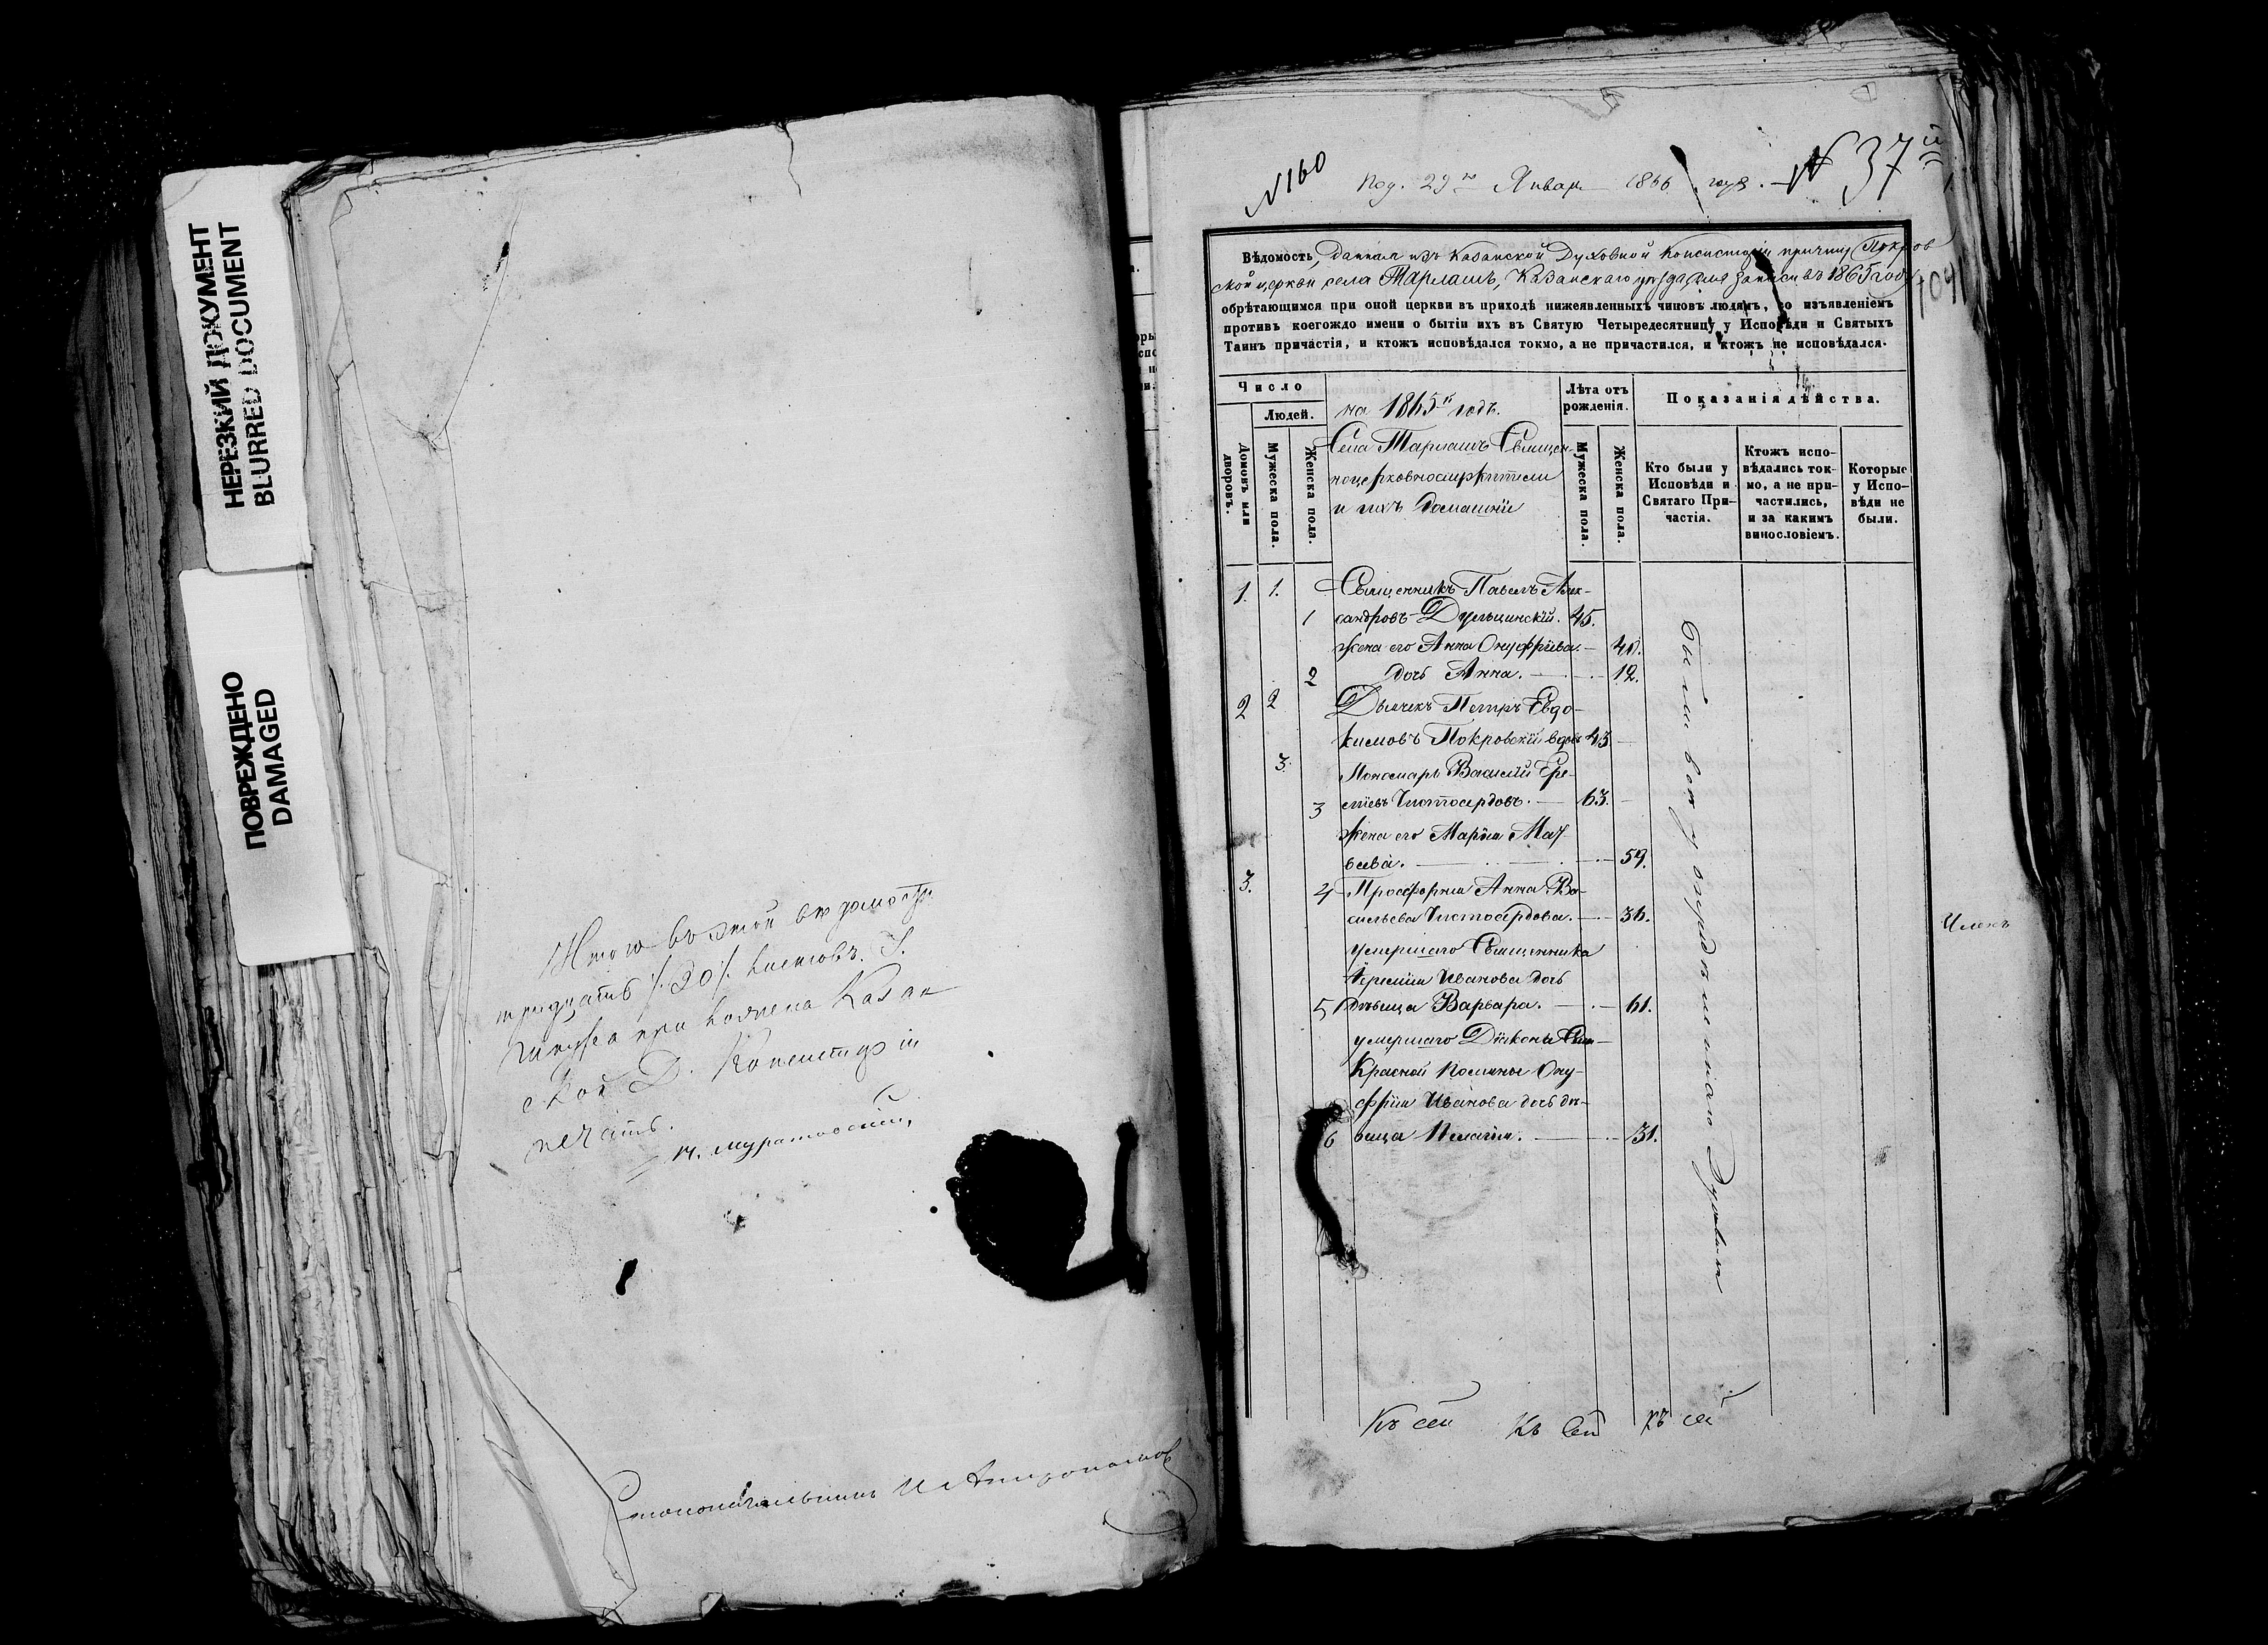 НЕРЕЗКИЙ ДОКУМЕНТ
BLURRED DOCUMENT
ПОВРЕЖДЕНО
DAMAGED
Итого въ этой ведомости
тридцать /:30:/ листовъ. У
шнура приложена Казан
ской Д. Консисторіи
печать.
Столоначальникъ И
№ 160
Пол. 29го Января 1866 года. № 37й
Вѣдомость, данная изъ Казанской Духовной Консисторіи причту Покров
ской церкви села Тарлашъ, Казанскаго уѣзда для записи въ 1865 году
обрѣтающимся при оной церкви въ приходѣ нижеявленныхъ чиновъ людямъ, со изъявленіемъ
противъ коегождо имени о бытіи ихъ въ Святую Четыредесятницу у Исповѣди и Святыхъ
Таинъ причастія, и ктожъ исповѣдался токмо, а не причастился, и ктожъ не исповѣдался.
Число
Людей.
Домовъ или дворовъ.
Мужеска пола.
Женска пола.
на 1865й годъ.
Села Тарлашъ Священ-
ноцерковнослужители
и ихъ домашніе
Лѣта отъ рожденія.
Мужеска пола.
Женска пола.
Показанія дѣйства.
Кто были у Исповѣди и Святаго Причастія.
Ктожъ исповѣдались токмо, а не причастились, и за какимъ винословіемъ.
Которые у Исповѣди не были.
1. 1. Священникъ Павелъ Алек-
1 сандровъ Дульцинскій. 45.
жена его Анна Онуфріева. — 40.
2 дочь Анна. — 12.
2 2 Дьячекъ Петръ Евдо-
кимовъ Покровскій вдовъ 43 —
3. Пономарь Василій Ере-
3 мѣевъ Чистосердовъ. — 63. —
жена его Марья Мат-
вѣева. — 59.
3. 4 Просфорня Анна Ва-
сильева Чистосердова. — 36.
умершаго Священника
Еремѣя Иванова дочь
5 дѣвица Варвара. — 61.
умершаго Діакона села
Красной Поляны Ону-
фрія Иванова дочь дѣ-
6 вица Пелагія. — 31.
Были всѣ у исповѣди
Членъ
Къ сей Къ сей Къ сей